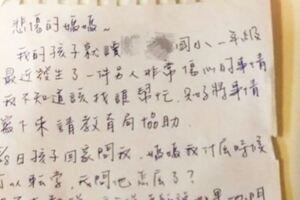 悲傷的媽媽~
我的孩子就讀 國小一年級
最近發生了一件另人非常傷心的事情
我不知道該找誰幫忙，只好將事情
寫下來請教育局協助.
8日孩子回家問我，媽媽我什麼時候
可以轉學，我問他怎麼了？